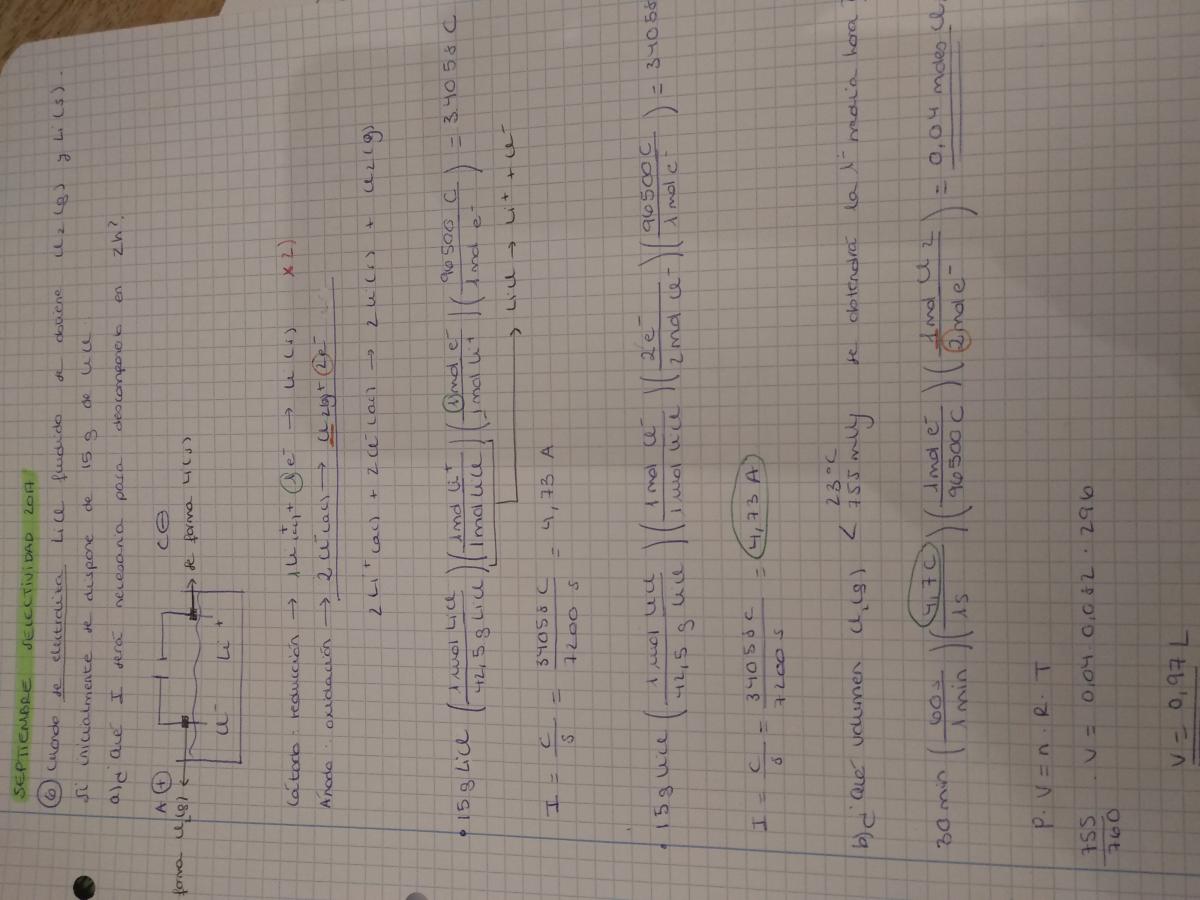 SEPTIEMBRE SELECTIVIDAD 2017
6 Cuando se electroliza LiCl fundido se obtiene Cl2(g) y Li(s).
Si inicialmente se dispone de 15 g de LiCl
a) ¿Qué I será necesaria para descomponerlo en 2h?
A + C -
forma Cl2(g) ← → se forma Li(s)
Cl- Li+
Cátodo: reducción → 1Li+(ac) + 1e- → Li(s) x2)
Ánodo: oxidación → 2Cl-(ac) → Cl2(g) + 2e-
2Li+(ac) + 2Cl-(ac) → 2Li(s) + Cl2(g)
• 15g LiCl (1mol LiCl / 42,5g LiCl) (1mol Li+ / 1mol LiCl) (1mol e- / 1mol Li+) (96500 C / 1mol e-) = 34058 C
→ LiCl → Li+ + Cl-
I = C/s = 34058C / 7200 s = 4,73 A
• 15g LiCl (1mol LiCl / 42,5g LiCl) (1mol Cl- / 1mol LiCl) (2e- / 2mol Cl-) (96500C / 1mol e-) = 34058
I = C/s = 34058C / 7200 s = 4,73 A
b) ¿Qué volumen Cl2(g) < 23ºC 755 mHg se obtendrá la 1ª media hora?
30min (60s / 1min) (4,7C / 1s) (1mol e- / 96500C) (1mol Cl2 / 2mol e-) = 0,04 moles Cl2
P. V = n. R. T
755/760 . V = 0,04. 0,082 . 296
V = 0,97 L